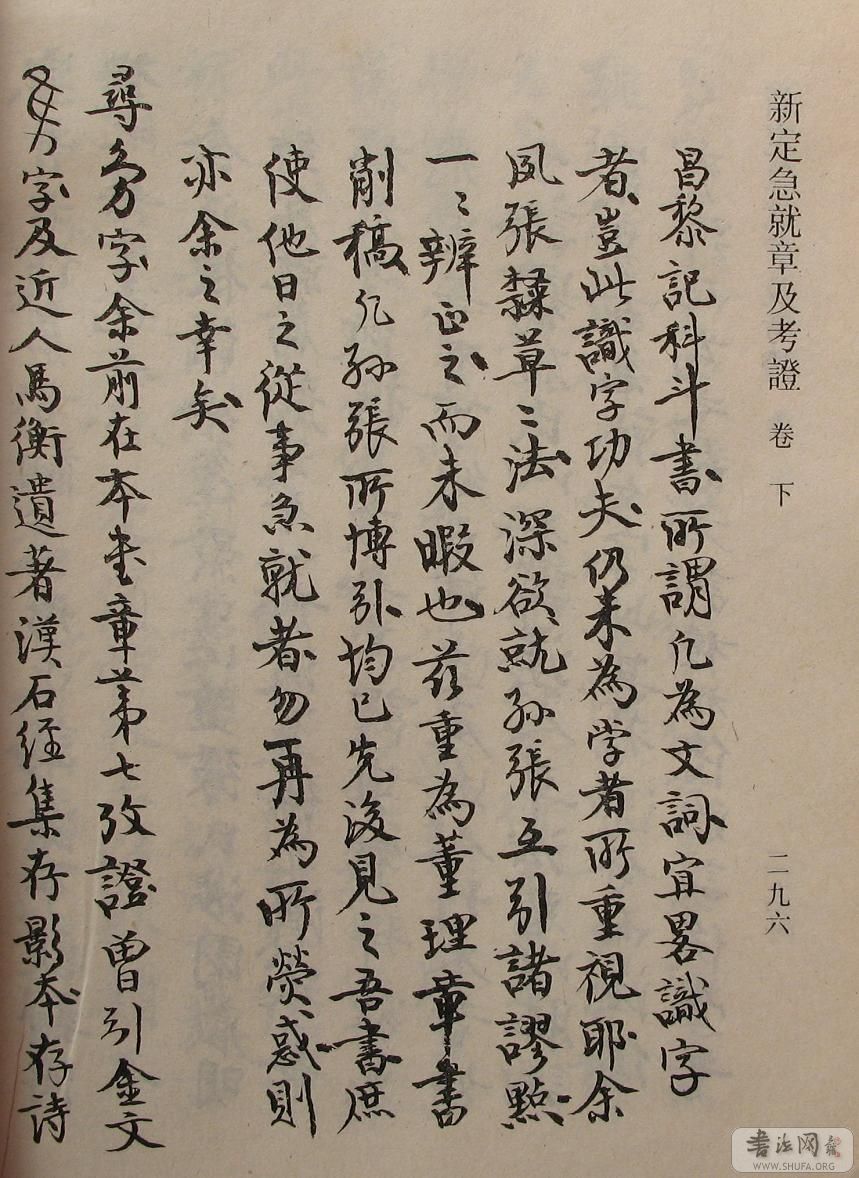 新定急就章及考證 卷下 二九六
昌黎記科斗書所謂凡為文詞宜畧識字
者豈此識字功夫仍未為学者所重視耶余
夙張隸草二法深欲就孙張互引諸謬點
一二辨正之而未暇也兹重為董理章書
削稿凡孙張所博引均已先後見之吾書庶
使他日之從事急就者勿再為所熒惑則
亦余之幸矣
尋字余前在本书章草第七攷證曾引金文
字及近人馬衡遺著漢石经集存影本存詩
書法网
WWW.SHUFA.ORG